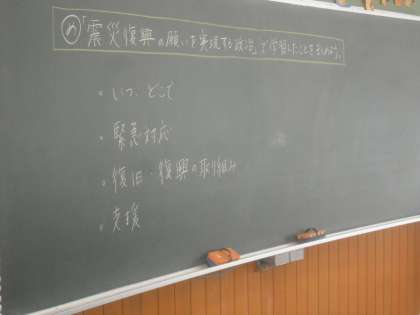 め「震災復興の願いを実現する政治」で学習したことをまとめよう。
・いつ、どこで
・緊急対応
・復旧・復興の取り組み
・支援